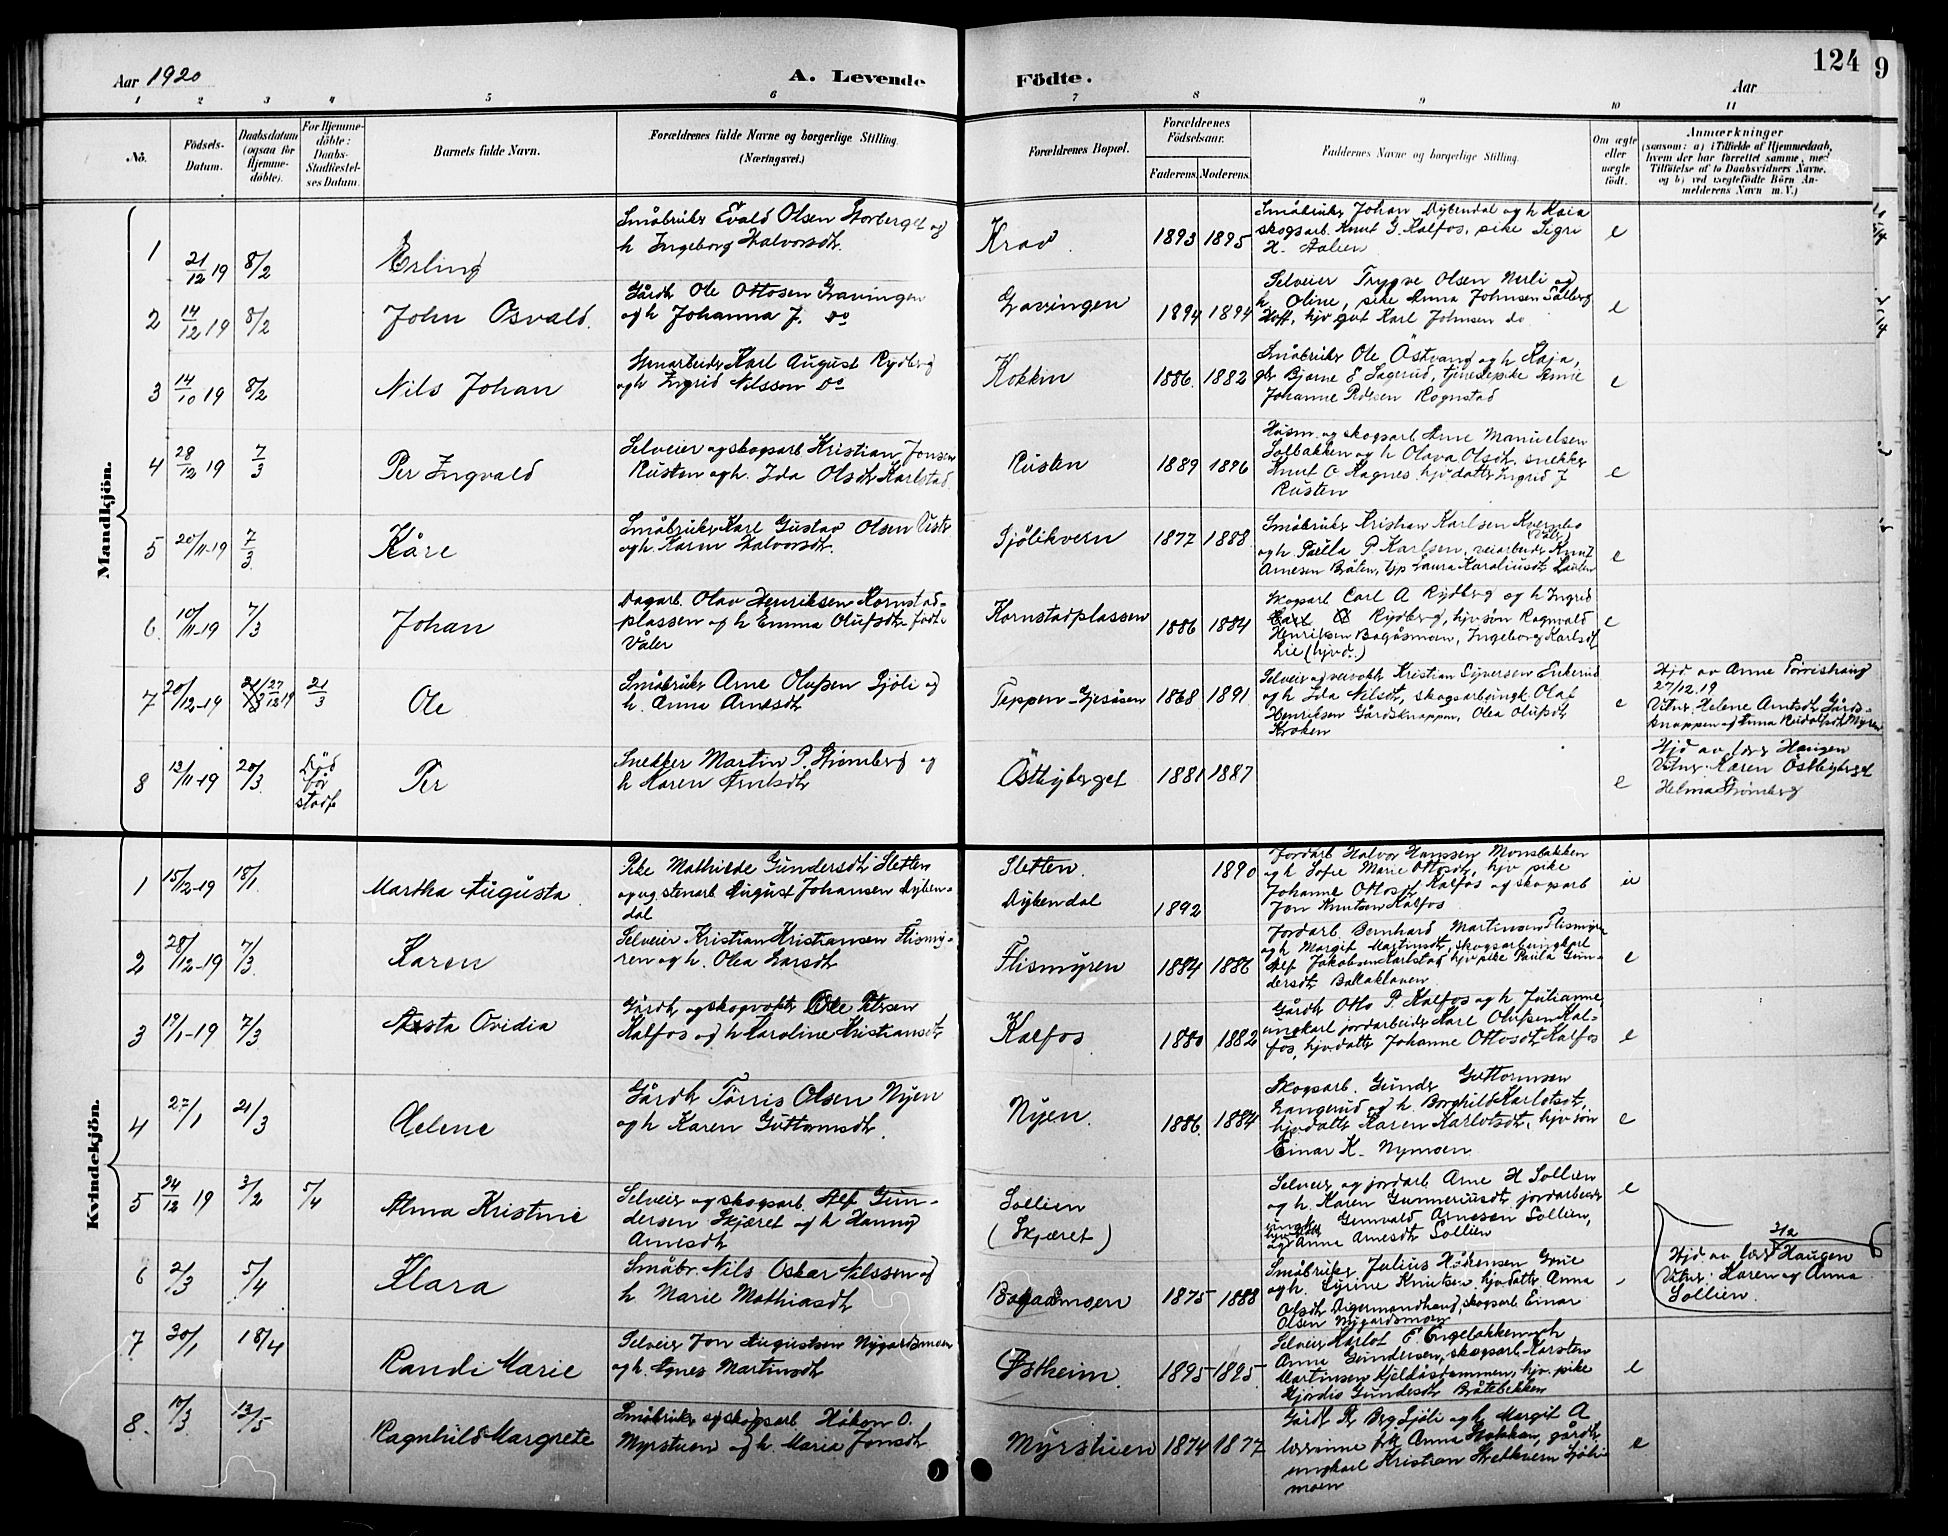 Aar 1920
A. Levende Födte.
Aar
124
9
1 2 3 4 5 6 7 8 9 10 11
No.
Födsels-Datum.
Daabsdatum (ogsaa for Hjemme-döbte).
For Hjemme-döbte: Daabs-Stadfæstel-ses Datum.
Barnets fulde Navn.
Forældrenes fulde Navne og borgerlige Stilling. (Næringsvei.)
Forældrenes Bopæl.
Forældrenes Födselsaar.
Faderens. Moderens.
Faddernes Navne og borgerlige Stilling.
Om ægte eller uægte födt.
Anmærkninger
(saasom: a) i Tilfælde af Hjemmedaab, hvem der har forrettet samme, med Tilföielse af to Daabsvidners Navne. og b) ved uægtefödte Börn An-melderens Navn m. V.)
Mandkjön.
1 21/12 19 8/2 Erling
Småbruker Evald Olsen Storberget og
h Ingeborg Halvorsdt.
Krav 1893 1895
Småbruker Johan Dybendal og h Kaia
skogsarb. Knut G. Kalfos, pike Sigri
H. Aalien
e
2 14/12 19 8/2 John Osvald.
Gårdb Ole Ottosen Gravingen
og h Johanna J. do
Gravingen 1894 1894
Selveier Trygve Olsen Neeli og
h. Oline, pike Anna Johnsen
Hoff, hjv gut Karl Johnsen do
e
3 14/10 19 8/2 Nils Johan
Karl August Rydberg
og h Ingrid Nilssen do
Kokkin 1886. 1882
Småbruker Ole Östvang og h Kaja,
gbr Bjarne E Sagerud, tjenestepike
Johanne Rognstad
e
4 28/12 19 7/3 Per Ingvald
Selveier og skogsarb Kristian Jonsen
Rusten og h. Ida Olsdt Karlstad.
Rusten 1889 1896
Husm. og skogsarb Arne Manuelsen
Solbakken og h Olava Olsdt. snekker
Knut O Hagnes hjv. datter Ingrid J
Rusten
e
5 20/11-19 7/3 Kåre
Småbruker Karl Gustav Olsen
og h. Karen Halvorsdt.
Sjölikvern 1877 1888
Småbruker Kristian Karlsen Kvernbo
(Våler)
og h. P Karlsen, veiarbeider Knut
Arnesen Bråten, tjp Laura Karoliusdt
e
6. 10/11-19 7/3 Johan
Dagarb. Olav Henriksen Kornstad-
plassen og h Emma Olufsdt. födt i
Våler
Kornstadplassen 1886 1884
Skogsarb Carl A Rydberg og h Ingrid
Rydberg, hjv sön Ragnvald
Henriksen Bagåsmoen, Ingeborg Karlsdt
Lie (hjvd.)
e
7 20/12-19 27/12 19 21/3 Ole
Småbruker Arne Olufsen Sjöli og
h. Anna Arnesdt
Teppen-Gjesåsen 1868 1891
Selveier og Kristian Syversen
og h Ida Nilsdt, skogsarb ungk Olaf
Henriksen Gårdsknappen, Olea Olufsdt
Kroken
e
Hjd av Anne Törrishaug
27/12.19
Vitner: Helene Arntsdt Gårds-
knappen og Anna Rudolfsdt Myren
8 13/11-19 20/3 Död för stadf. Per
Snekker Martin P. Strömberg og
h Karen Arntsdt
Östbyberget 1881 1887
e
Hjd av lær. Haugen
Vitner: Karen Östbyberget
Helma Strömberg
Kvindekjön.
1 15/12-19 18/1. Martha Augusta.
Pike Mathilde Gundersdt. Sletten
og ug. stenarb August Johansen Dyben-
dal
Sletten. 1890
Dybendal 1892
Jordarb Halvor Hanssen Monsbakken
og h Sofie Marie Ottosdt, hjv pike
Johanne Ottosdt Kalfos og skogsarb
Jon Knutsen Kalfos
u
2 28/12-19 7/3. Karen
Selveier Kristian Kristiansen Flismy-
ren og h. Olea Larsdt
Flismyren 1884 1886
Jordarb. Bernhard Martinsen Flismyren
og h. Margit Martinsdt, skogsarb ungkarl
Alf Jakobsen Karlstad hjv pike Paula Gun-
dersdt Bakkakleven
e
3 19/1-19 7/3. Asta Ovidia
Gårdb og skogvokter Ole Petersen
Kalfos og h Karoline Kristiansdt
Kalfos 1880 1882
Gårdb Otto P. Kalfos og h. Julianne,
ungkarl jordarbeider Karl Olufsen Kal-
fos, hjv datter Johanne Ottosdt Kalfos
e
4 27/1 21/3 Helene
Gårdb Törris Olsen Nyen
og h Karen Guttormsdt.
Nyen. 1886. 1884
Skogsarb. Gunder Guttormsen
Langerud og h. Borghild Karlotsdt,
hjv datter Karen Karlotsdt, hjv sön
Einar K. Nymoen
e
5 24/12 19 3/2 5/4 Alma Kristine
Selveier og skogsarb Alf Gun-
dersen Skjæret og h Hanny
Arnesdt
Sollien
(Skjæret)
Selveier og jordarb Arne H Sollien
og h. Karen Gunneriusdt, jordarbeider
ungk. Gunvald Arnesen Sollien,
Anne Arnesdt Sollien
e
3/2
Hjd av lær Haugen
Vitner: Karen og Anna
Sollien.
6 2/3 5/4. Klara
Småbr. Nils Oskar Nilssen og
h. Marie Mathiasdt
Bagaasmoen 1875 1888
Småbruker Julius Grue
og h. Syrine Knutsen hjv datter Anna
Olsdt Digermandhaug, skogsarb. Einar
Olsen Nygårdsmoen
7 30/1 18/4 Randi Marie
Selveier Jon Augustsen Nygårdsmoen
og h. Agnes Martinsdt
Østheim. 1895 1895.
Selveier Karlot E. Engebakken og h
Anna Gundersen, skogsarb. Karsten
Martinsen Kjeldåsbammen, hjv. pike
Hjördis Gundersdt Bråtebekken
e
8. 17/3. 13/5 Ragnhild Margrete
Småbruker og skogsarb Håkon O.
Myrstuen og h. Marie Jonsdt
Myrstuen 1874 1877
Gårdb Berg Sjöli og h. Margit A
lærerinne frk Anna Stokken, gårdb
ungkarl Kristian Sjöli-
moen
e